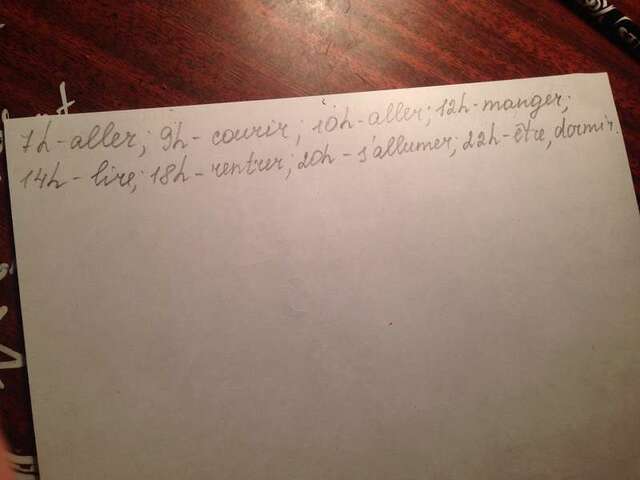 7h-aller; 9h-courir; 10h-aller; 12h-manger;
14h-lire; 18h-rentrer; 20h-s'allumer; 22h-être, dormir.